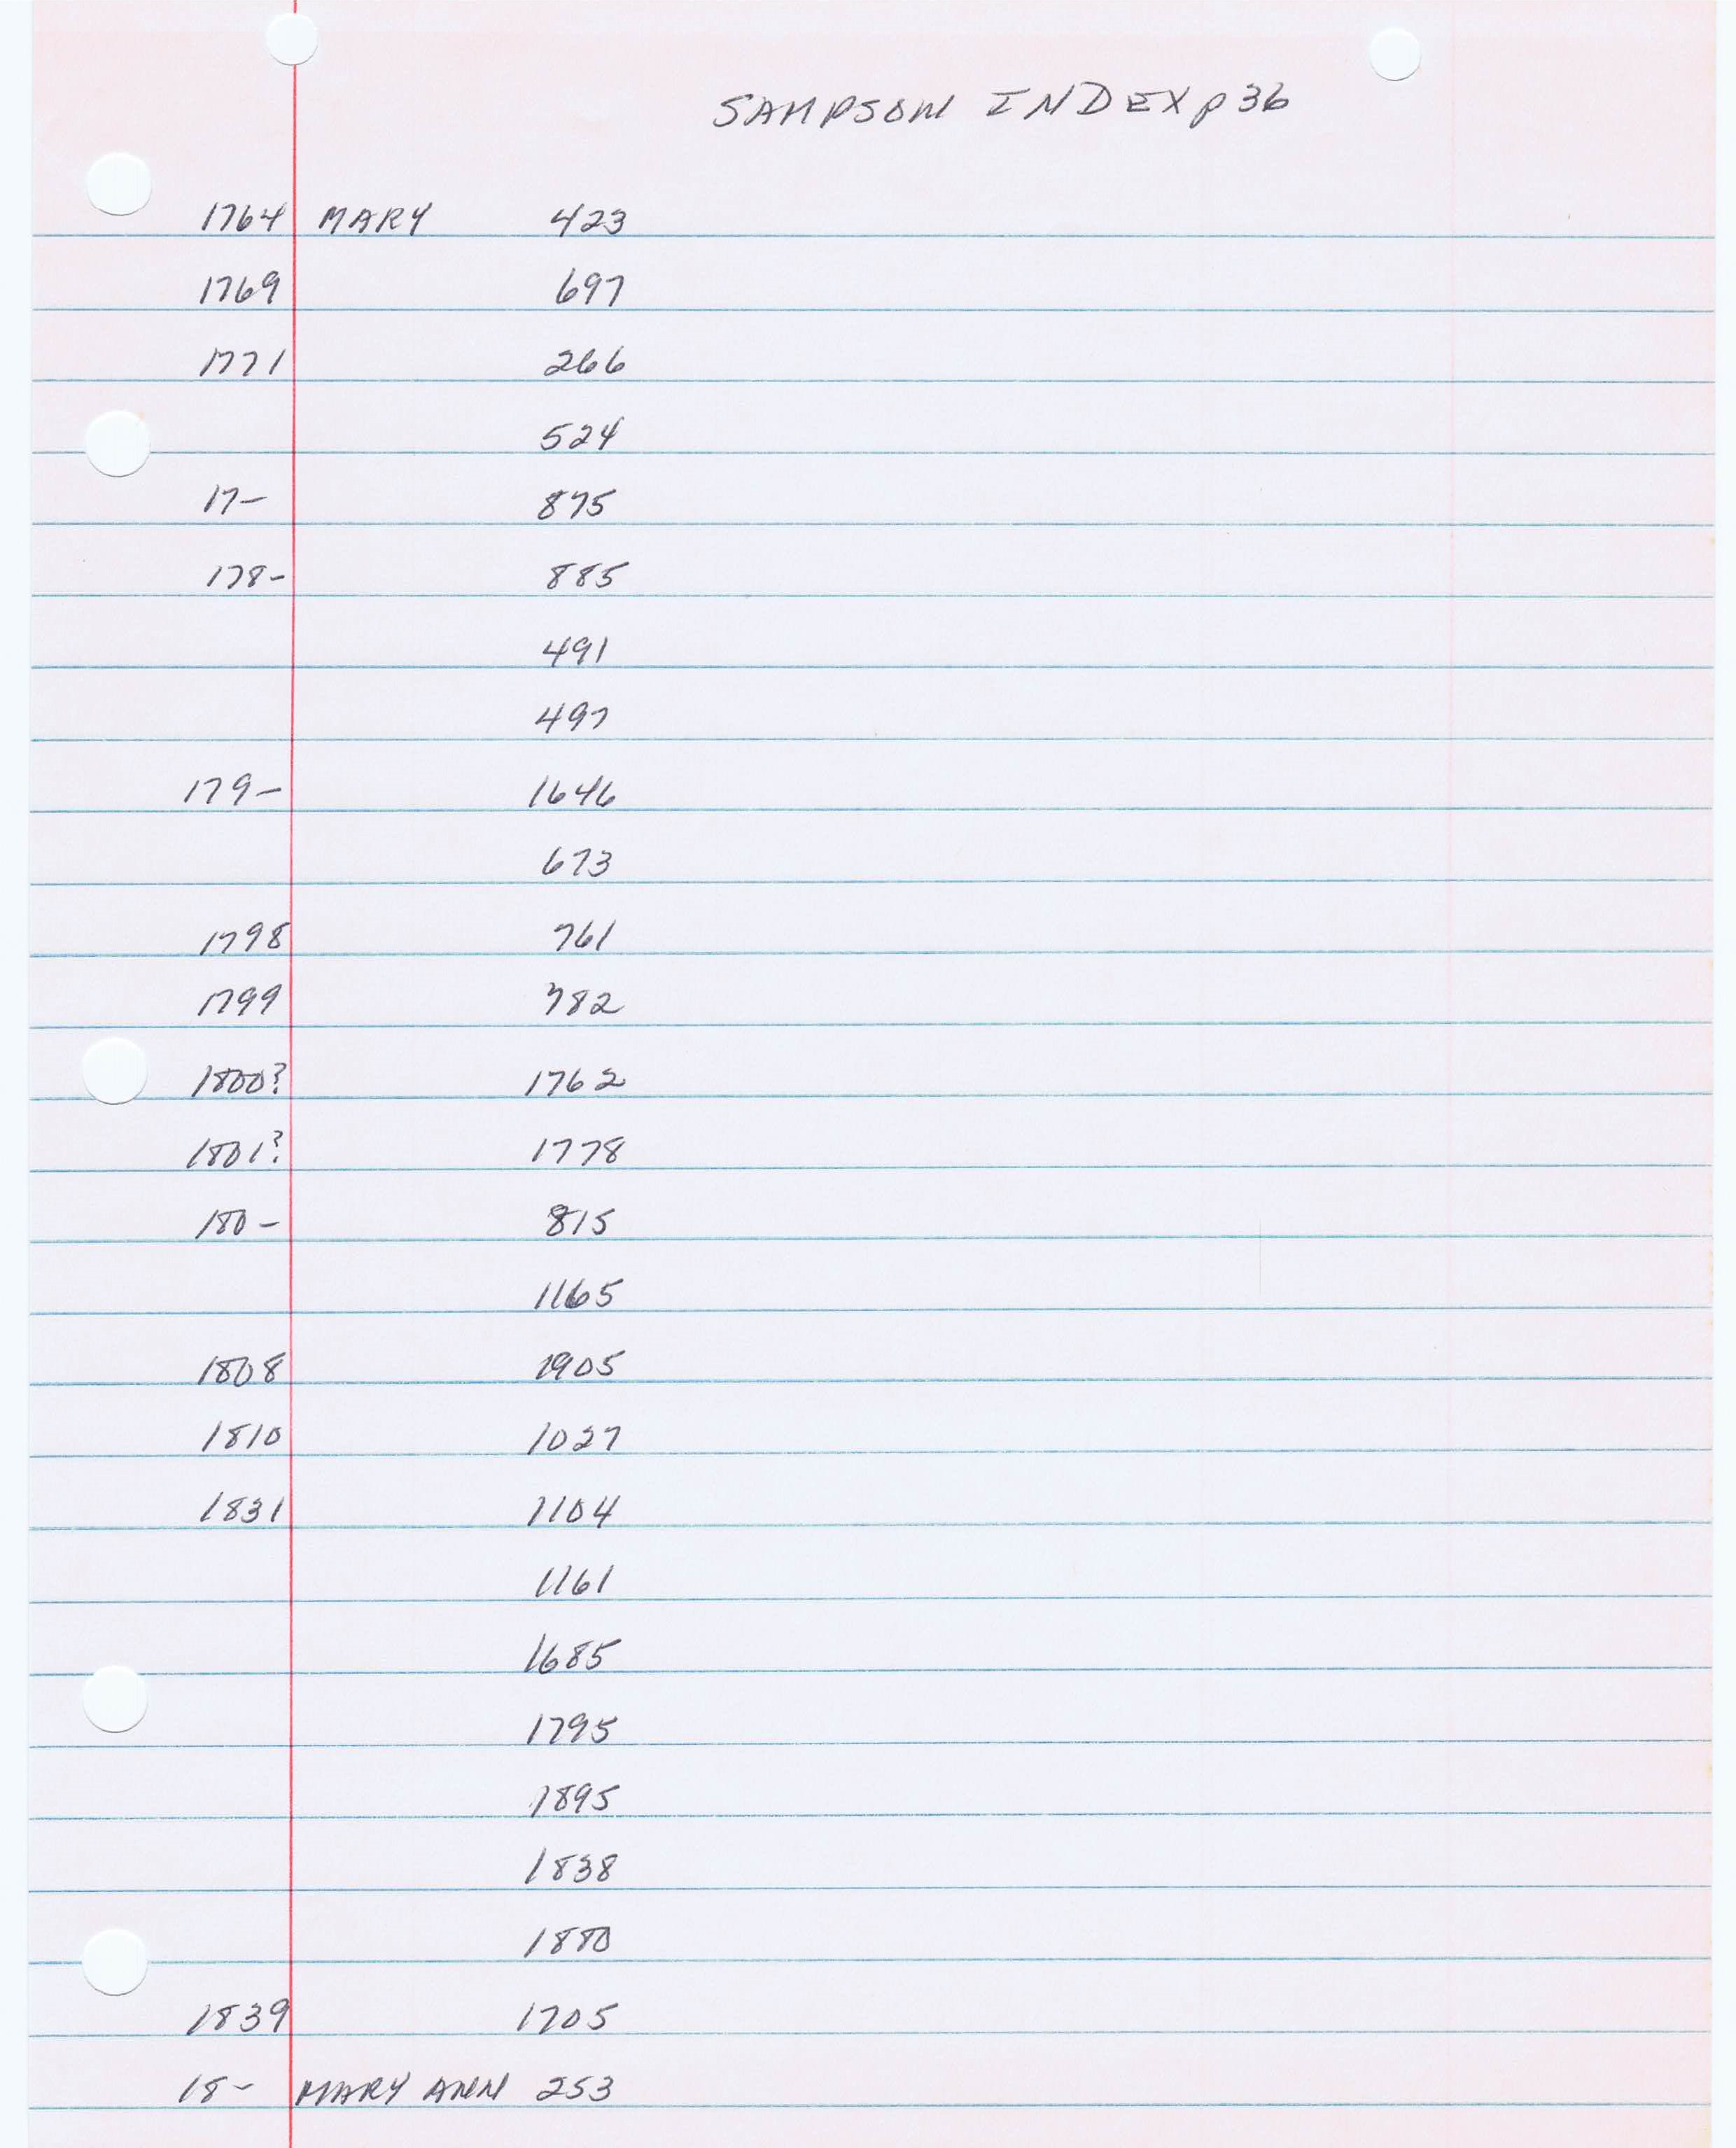 SAMPSON INDEX p 36
1764 MARY 423
1769 697
1771 266
524
17- 875
178- 885
491
497
179- 1646
673
1798 761
1799 782
1800? 1762
1801? 1778
180- 815
1165
1808 1905
1810 1027
1831 1104
1161
1685
1795
1895
1838
1880
1839 1705
18- MARY ANN 253